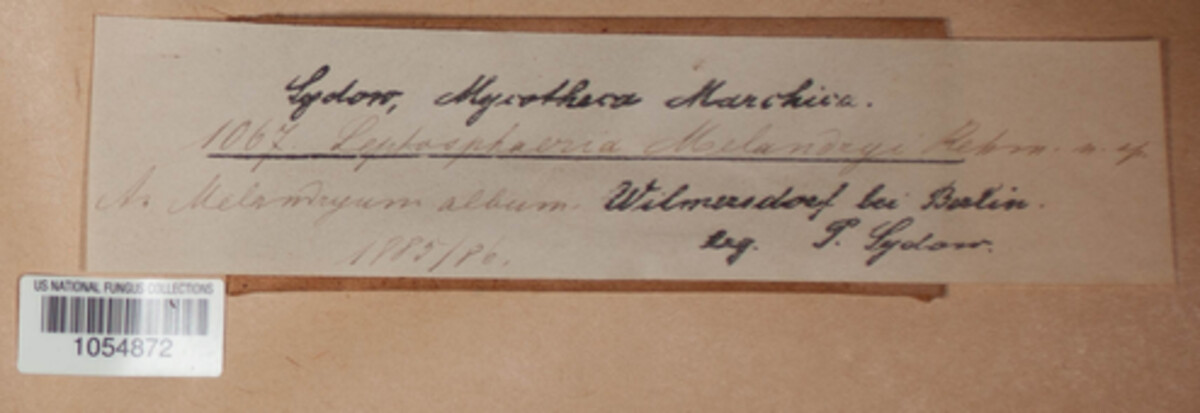 Sydow, Mycotheca Marchica.
1067. Leptosphaeria Melandryi Rehm. n. sp.
An Melandryum album. Wilmersdorf bei Berlin.
1885/86. leg. P. Sydow.
US NATIONAL FUNGUS COLLECTIONS
1054872